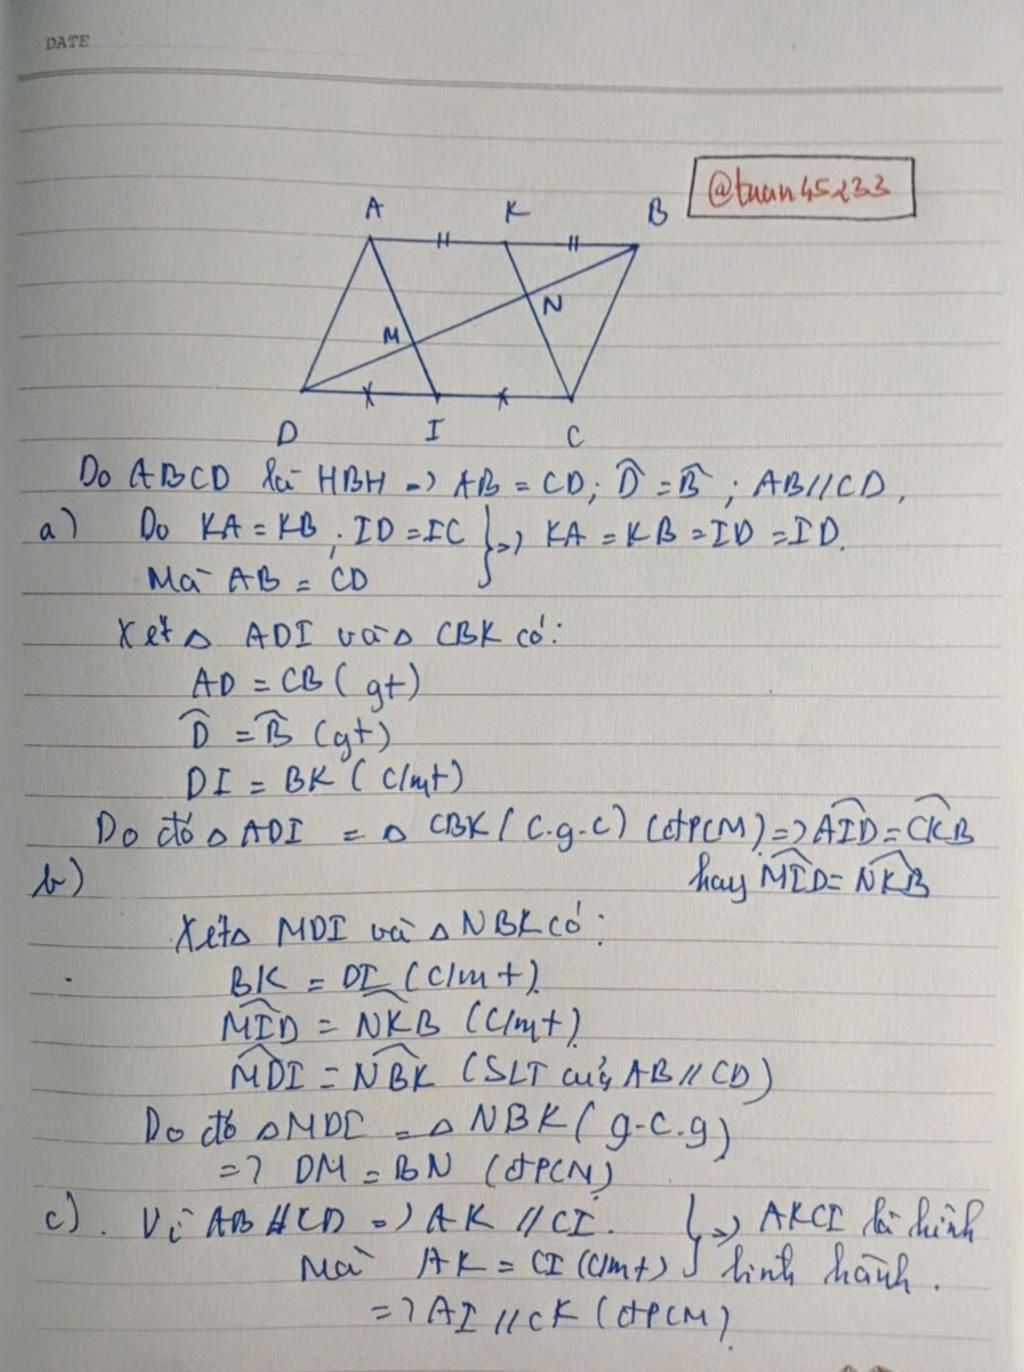 DATE
@tuan45233
A K B
N
M
D I C
Do ABCD là HBH => AB = CD; D̂ = B̂ ; AB//CD,
a) Do KA = KB ; ID = IC } => KA = KB = ID = ID.
Mà AB = CD
Xét Δ ADI và Δ CBK có:
AD = CB ( gt)
D̂ = B̂ (gt)
DI = BK ( c/mt)
Do đó Δ ADI = Δ CBK ( c.g.c) (đPCM) => AID = CKB
b) hay MID = NKB
Xét Δ MDI và Δ NBK có:
BK = DI (c/m t).
MID = NKB (c/mt)
MDI = NBK (SLT của AB // CD)
Do đó Δ MDI = Δ NBK ( g-c.g)
=> DM = BN (đPCM)
c). Vì AB // CD => AK // CI. } => AKCI là hình
Mà AK = CI (c/mt) bình hành.
=> AI // CK (đPCM)